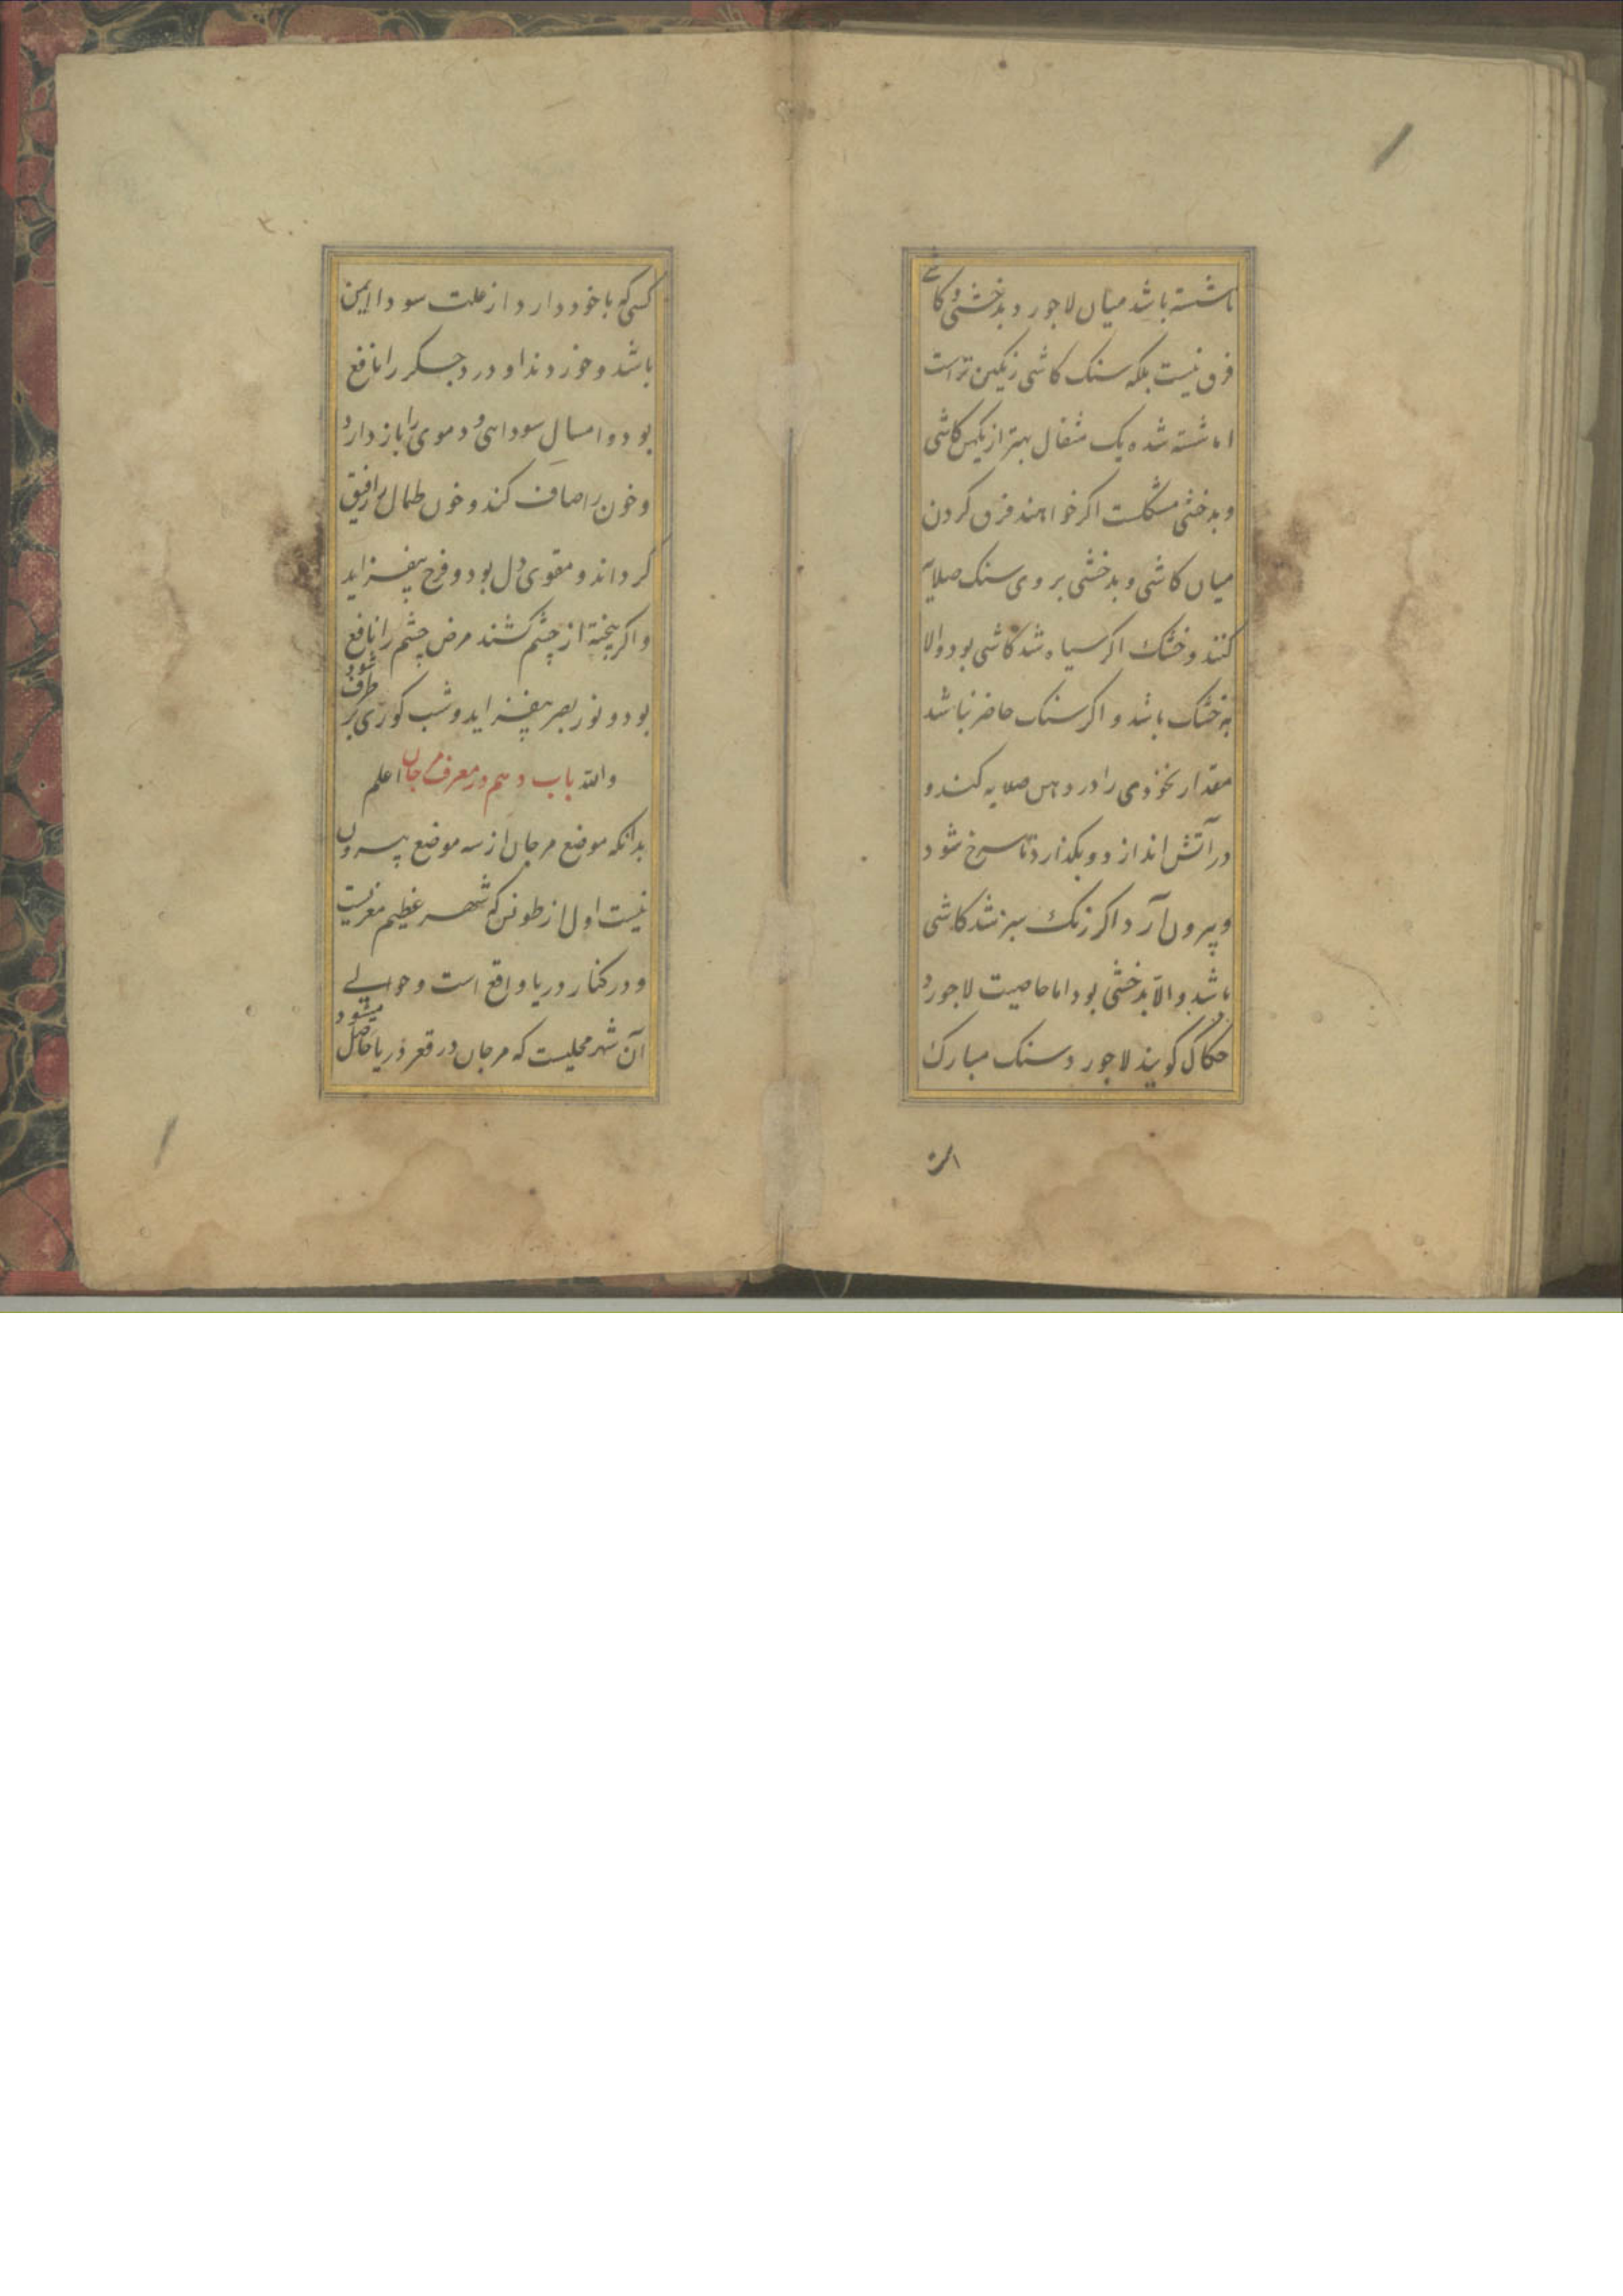 ناشسته باشد میان لاجورد بدخشی و کاشی
فرق نیست بلکه سنک کاشی رنکین تر است
اما شسته شده یک مثقال بهتر از یکمن کاشی
و بدخشی مشکلست اکر خواهند فرق کردن
میان کاشی و بدخشی بر روی سنک صلایه
کنند و خشک اکر سیاه شد کاشی بود والا
به خشک باشد و اکر سنک حاضر نباشد
مقدار نخودی را در دهن صلایه کند و
در آتش اندازد و بکذارد تا سرخ شود
و بیرون آرد اکر رنک سبز شد کاشی
باشد والا بدخشی بود اما خاصیت لاجورد
حکاک کویند لاجورد سنک مبارک
است
کسی که با خود دارد از علت سودا ایمن
باشد و خوردن او درد جسکر را نافع
بود و اسهال سوداهی و دموی را باز دارد
و خون را صاف کند و خون طحال را رقیق
کرداند و مقوی دل بود و فرح بیفزاید
و اکر پخته از چشم کشند مرض چشم را نافع
بود و نور بصر بیفزاید و شب کوری بر طرف شود
والله باب دهم در معرفت مرجان اعلم
بدانکه موضع مرجان از سه موضع بیرون
نیست اول از طونس که شهر عظیم مغربست
و در کنار دریا واقع است و حوالی
آن شهر محلیست که مرجان در قعر دریا حاصل میشود